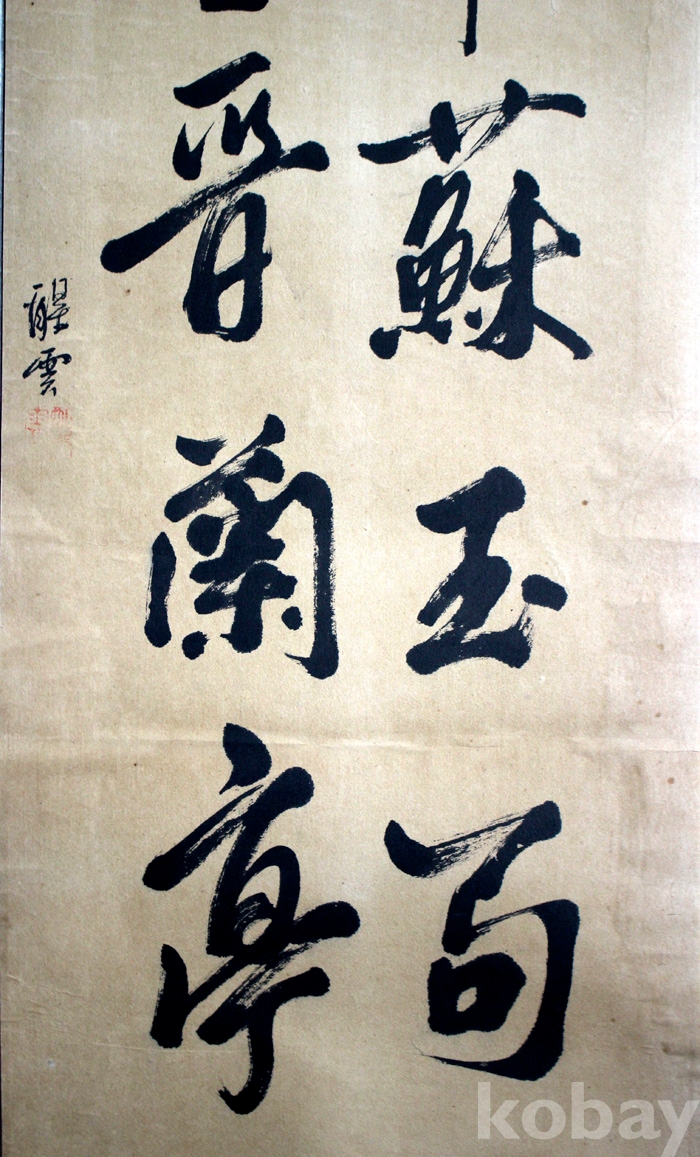 蘇玉局
晉蘭亭
醒雲
kobay